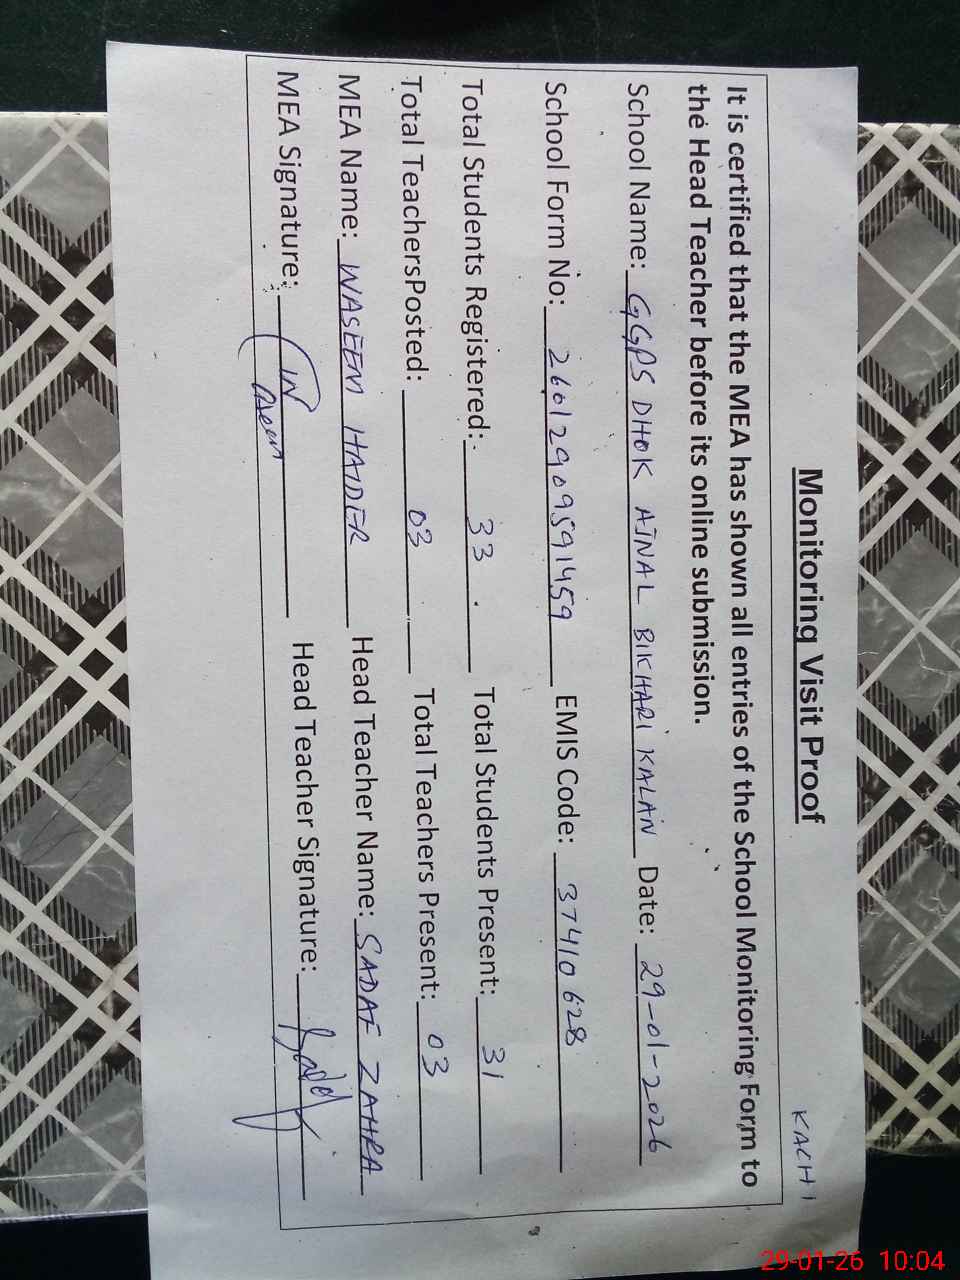 KACHI
Monitoring Visit Proof
It is certified that the MEA has shown all entries of the School Monitoring Form to
the Head Teacher before its online submission.
School Name: GGPS DHOK AINAL BIKHARI KALAN Date: 29-01-2026
School Form No: 26012909591459 EMIS Code: 37410628
Total Students Registered: 33 Total Students Present: 31
Total TeachersPosted: 03 Total Teachers Present: 03
MEA Name: WASEEM HAIDER Head Teacher Name: SADAF ZAHRA
MEA Signature: Head Teacher Signature:
29-01-26 10:04